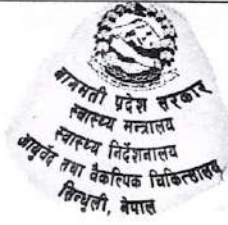 बागमती प्रदेश सरकार
स्वास्थ्य मन्त्रालय
स्वास्थ्य निर्देशनालय
आयुर्वेद तथा वैकल्पिक चिकित्सालय
सिन्धुली, नेपाल